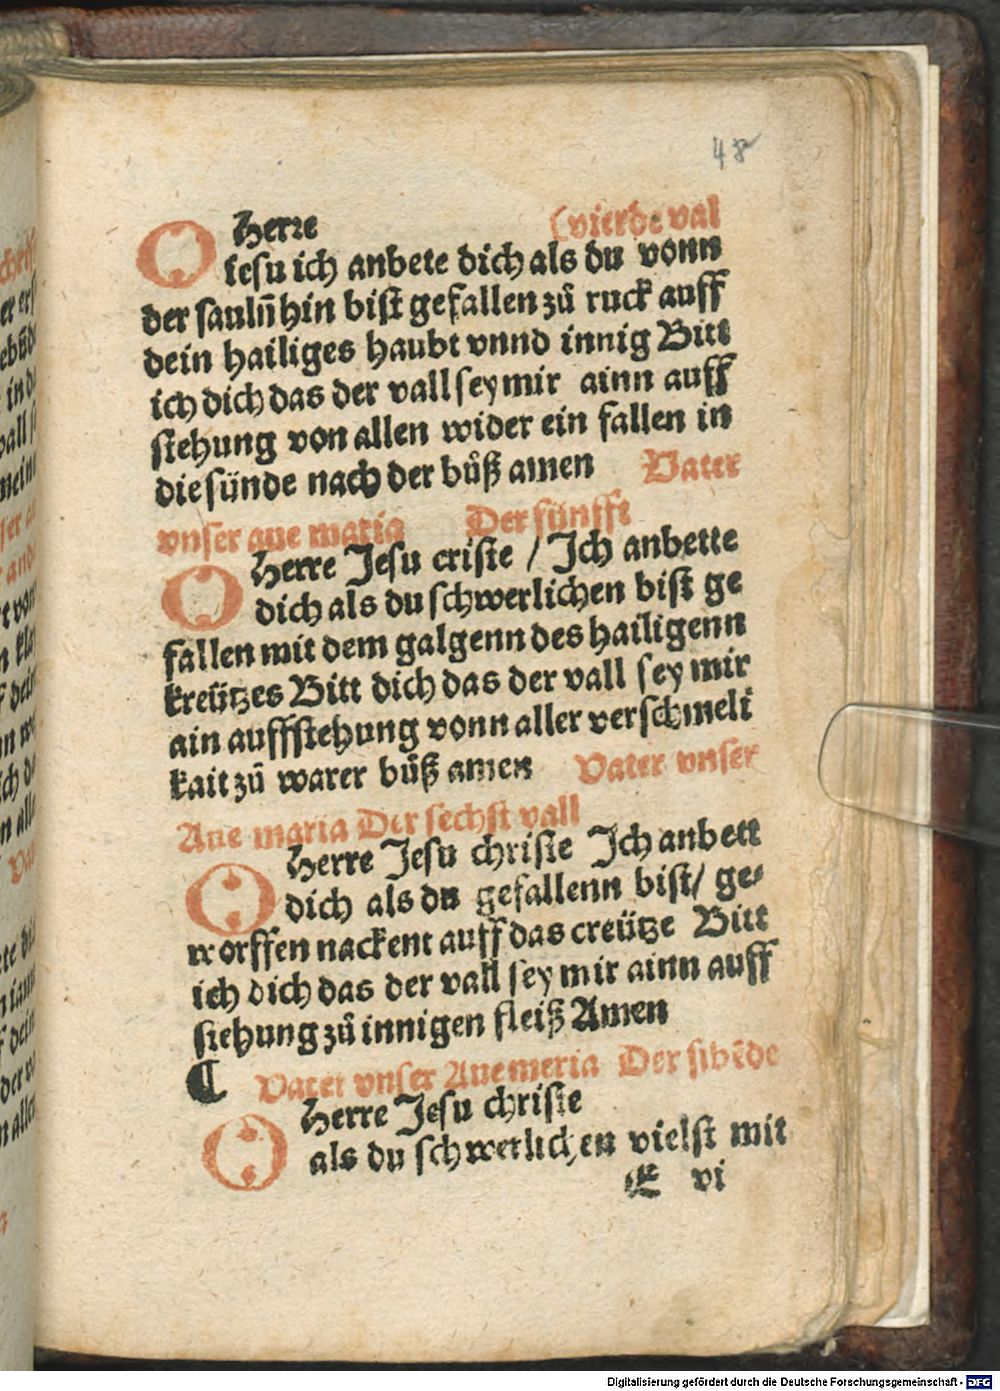 48
O Herre (vierde val
Iesu ich anbete dich als du vonn
der saulñ hin bist gefallen zů ruck auff
dein hailiges haubt vnnd innig Bitt
ich dich das der vall sey mir ainn auff
stehung von allen wider ein fallen in
die sünde nach der bůß amen Vater
vnser aue maria Der fünfft
O Herre Jesu criste / Ich anbette
dich als du schwerlichen bist ge
fallen mit dem galgenn des hailigenn
kreützes Bitt dich das der vall sey mir
ain auffstehung vonn aller verschmeli
kait zů warer bůß amen Vater vnser
Aue maria Der sechst vall
O Herre Jesu christe Ich anbett
dich als du gefallenn bist / ge⸗
worffen nackent auff das creütze Bitt
ich dich das der vall sey mir ainn auff
stehung zů innigen fleiß Amen
¶ Vater vnser Aue meria Der sibẽde
O Herre Jesu christe
als du schwerlichen vielst mit
E vi
Digitalisierung gefördert durch die Deutsche Forschungsgemeinschaft - DFG